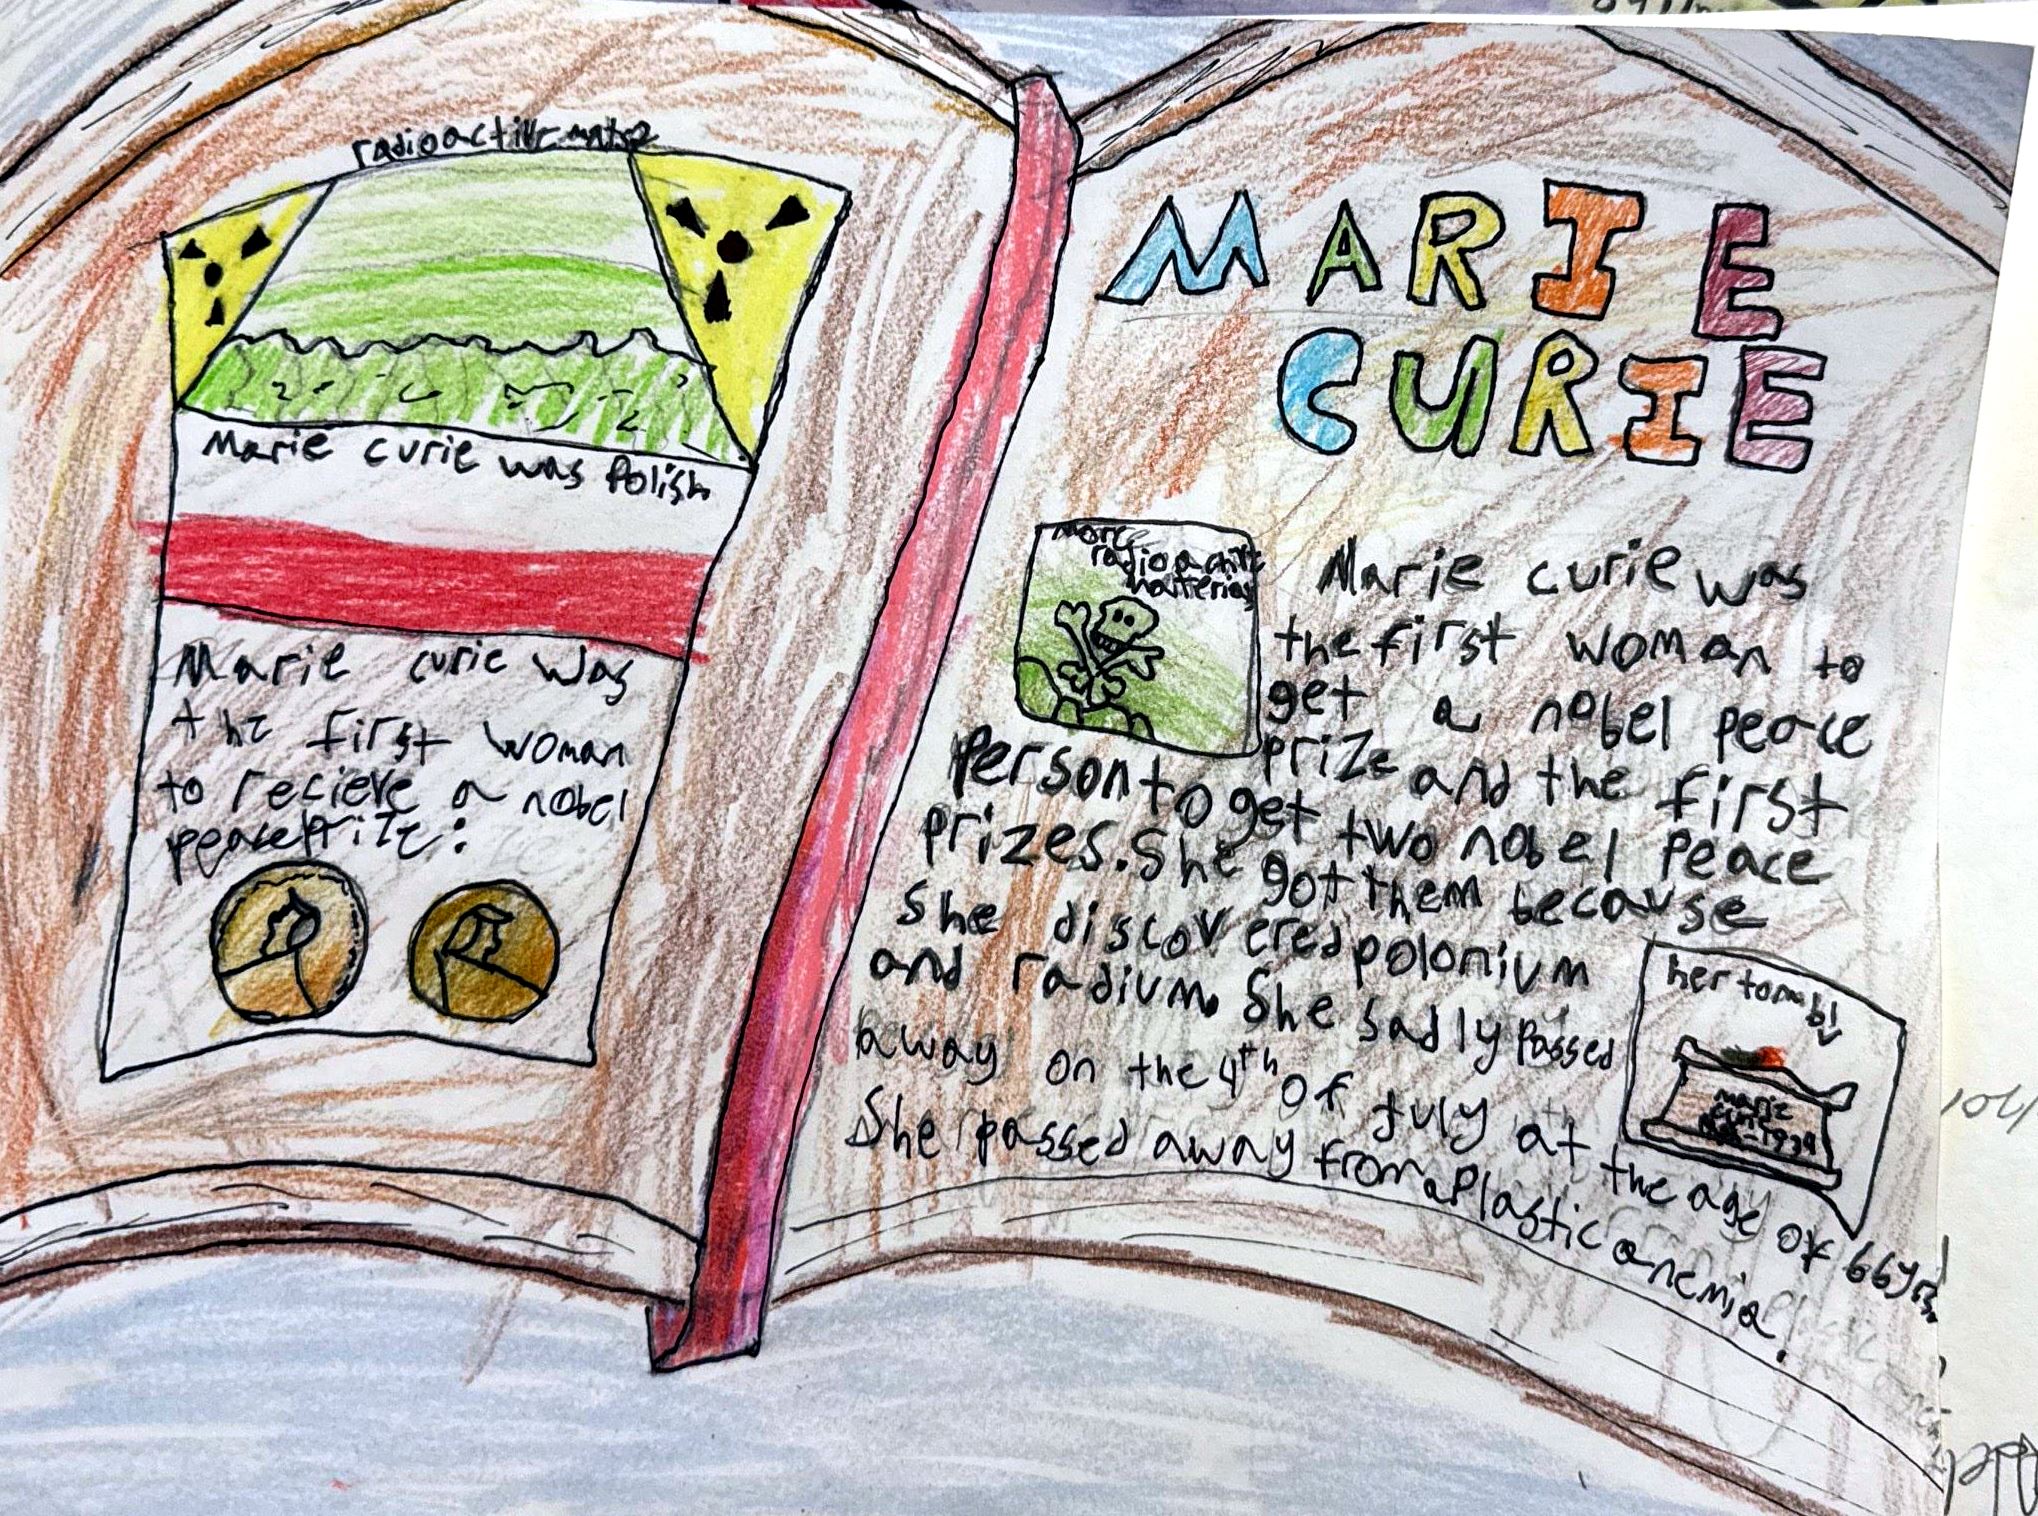 radioactive
Marie curie was Polish
Marie curie was
the first woman
to recieve a nobel
peace Prize:
MARIE
CURIE
more
radioactive
Marie curie was
the first woman to
get a nobel peace
prize and the first
Person to get two nobel Peace
prizes. She got them because
She discovered polonium
and radium. She sadly Passed
away on the 4th of July at the age of 66yrs.
She passed away from aPlastic anemia.
her tomb!
marie
curie
1934